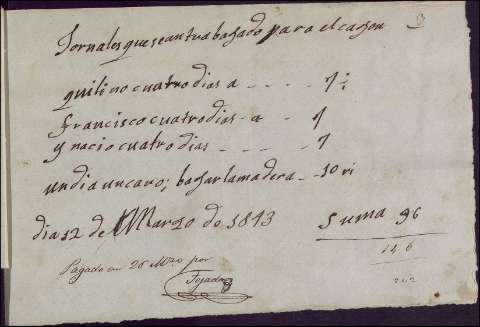 Jornales que se an trabagado para el cason
quilino cuatro dias a - - - - 7
Francisco cuatro dias - a - 7
y nacio cuatro dias - - - - 7
un dia un caro; bagar la madera - - 10 ri
dia 12 de Marzo de 1843
Suma 96
146
Pagado en 26 Mzo por
Tejada